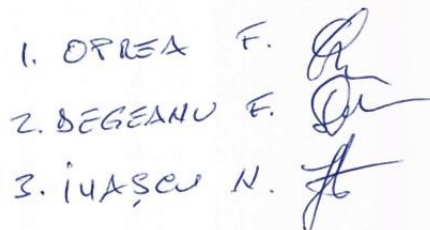 1. OPREA F.
2. DEGEANU E.
3. IVAŞCU N.